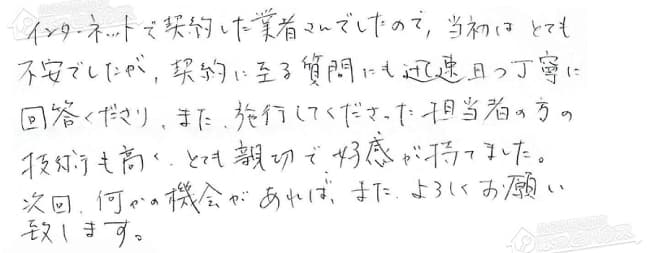 インターネットで契約した業者さんでしたので、当初はとても
不安でしたが、契約に至る質問にも迅速且つ丁寧に
回答くださり、また、施行してくださった担当者の方の
技術も高く、とても親切で好感が持てました。
次回、何かの機会があれば、また、よろしくお願い
致します。